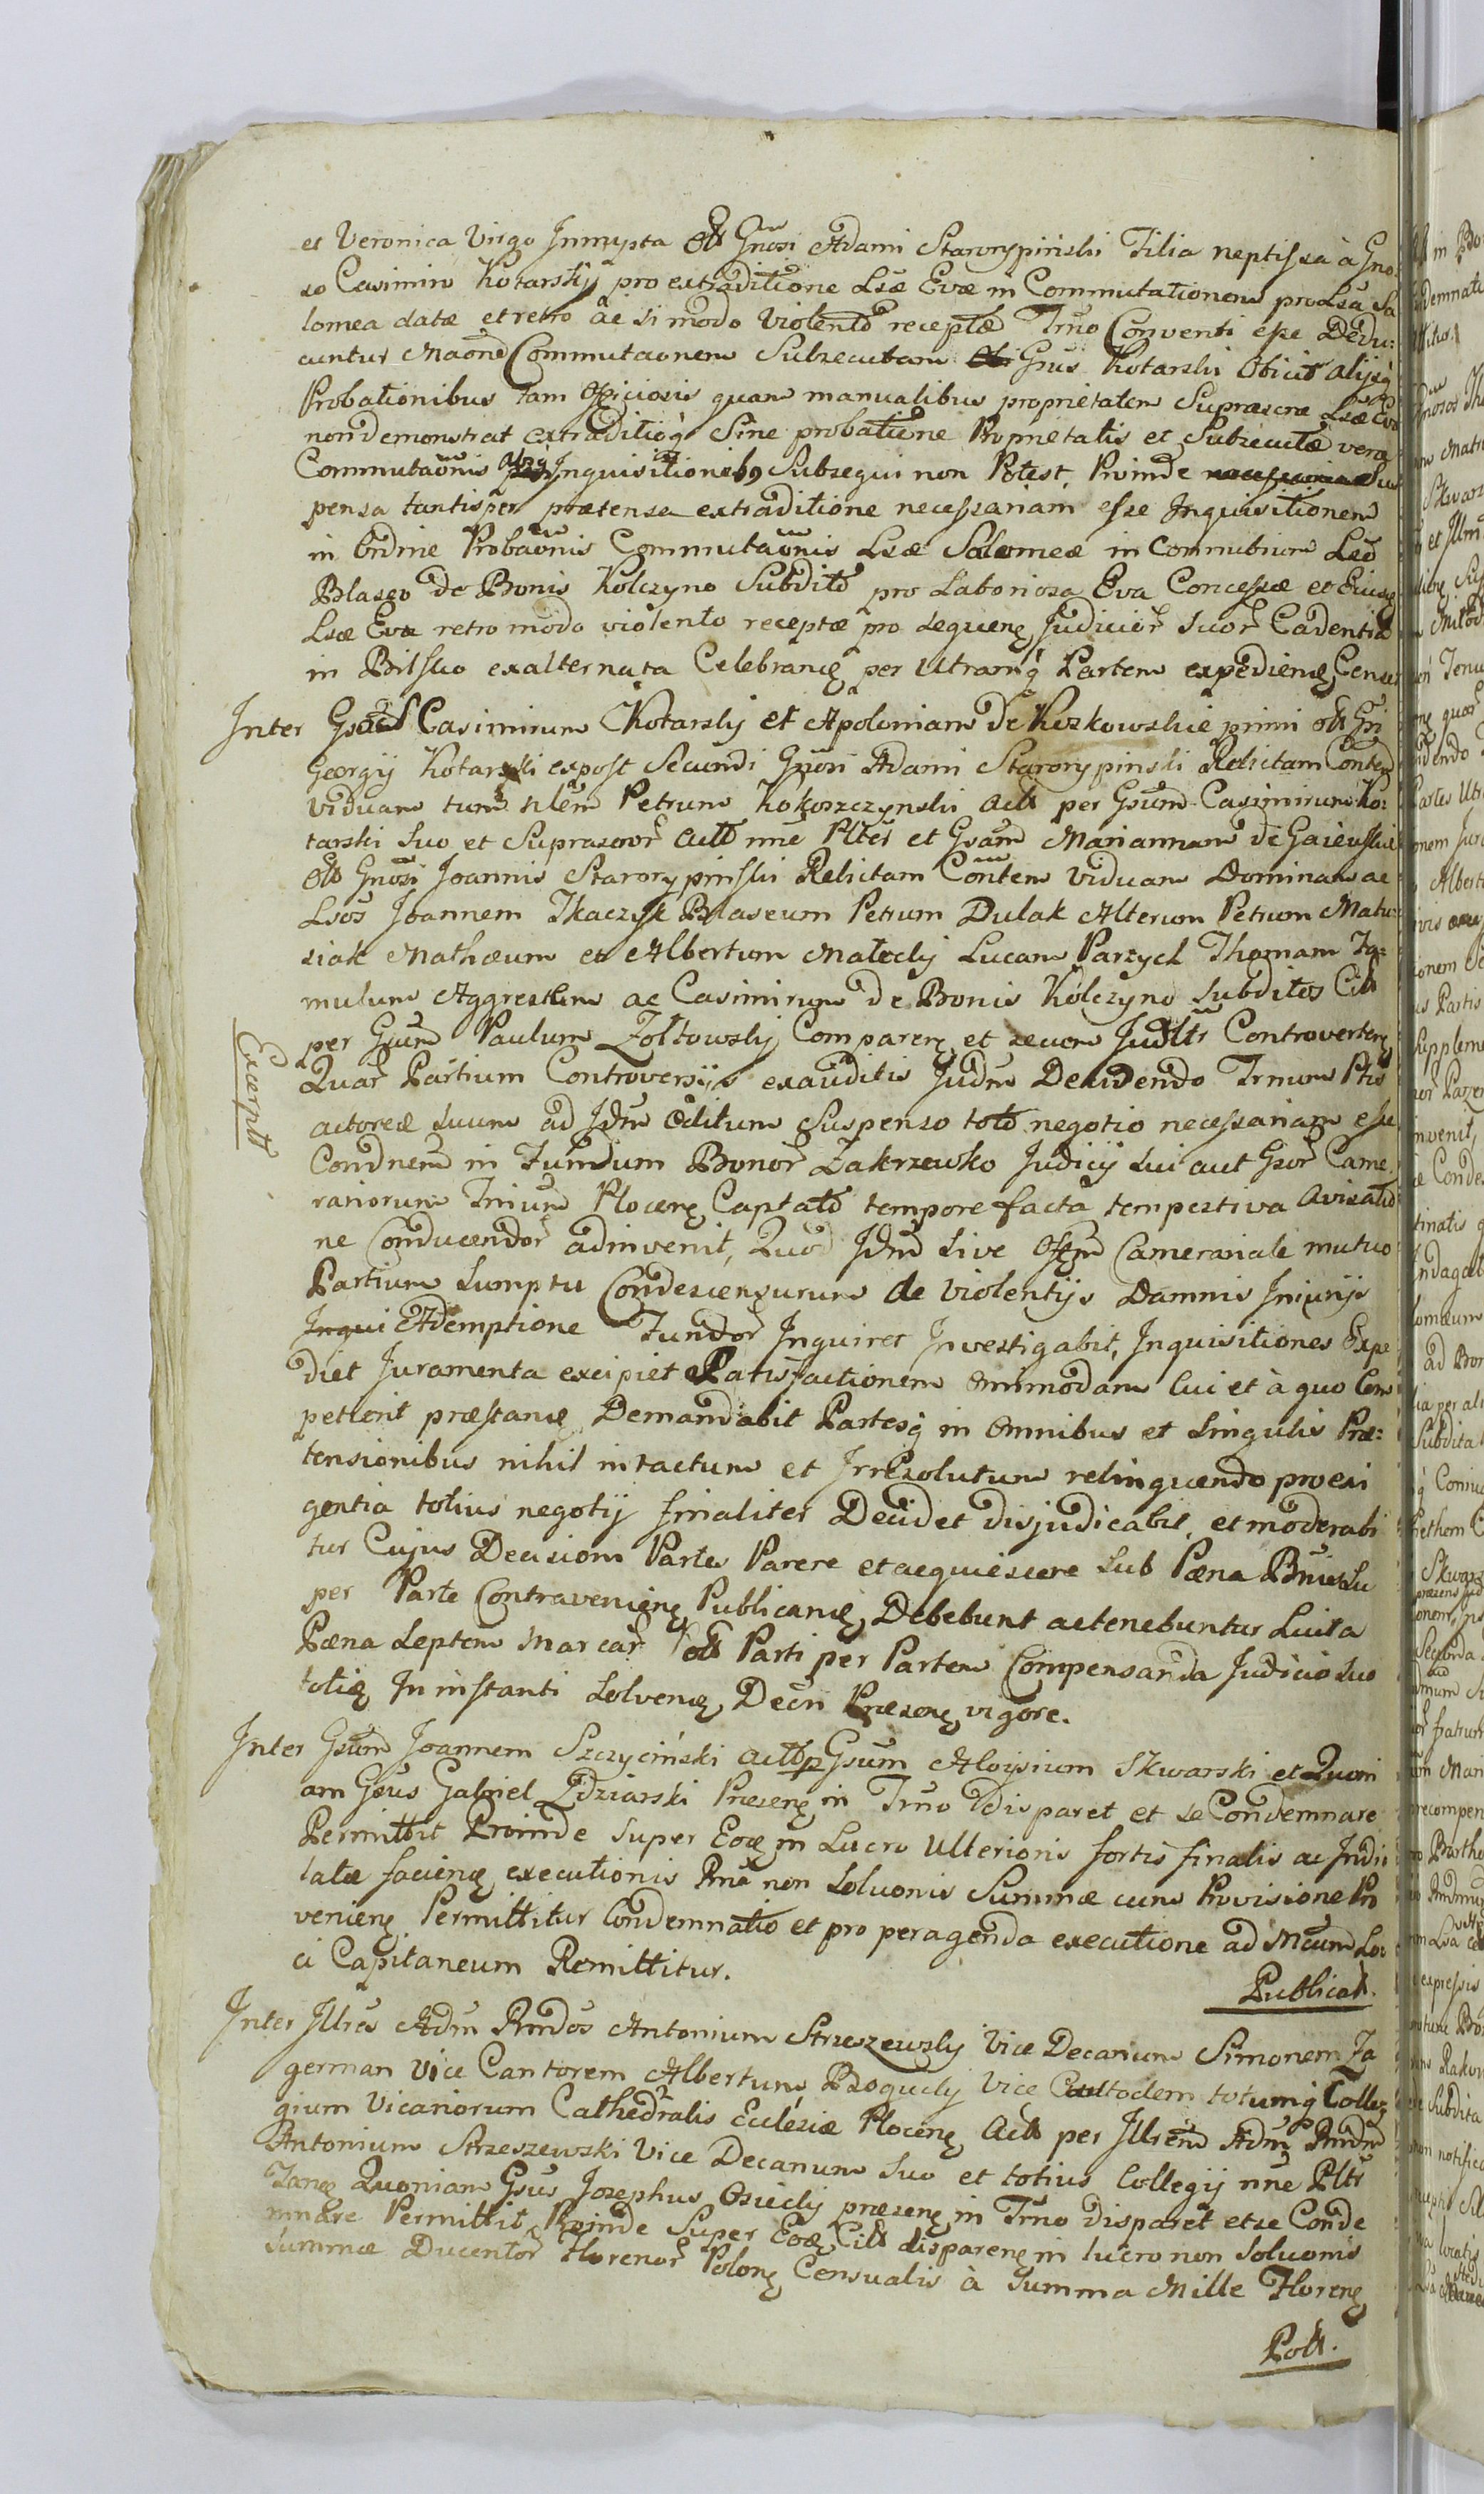 et Veronica Virgo Innupta Olt Gnosi Adami Starorypinski Filia neptis sua à Gno
so Casimiro Kotarskij pro extraditione Lsæ Evæ in Commutationem pro Lsa Sa
lomea datæ et retro ac si modo Violento receptæ Trno Conventi esse Dedu:
cuntur Commutaonem Subsecutam Gnus Kotarski Obicit alijsq
Probationibus tam Officiosis quam manualibus proprietatem Suprascræ Lsæ Evæ
non demonstrat extraditioq Sine probatione Proprietatis et Subsecutæ veræ
Commutaonis Inquisitionibq Subsequi non Potest, Proinde Sus
pensa tantisper prætensa extraditione necessariam esse Inquisitionem
in Ordine Probaonis Commutaonis Lsæ Salomeæ in Connubium Lso
Blaseo de Bonis Kolczyno Subdito pro Laboriosa Eva Concessæ et Eiusq
Lsæ Eva retro modo violento receptæ pro sequenq Judicior Suor Cadentia
in Bilsko exalternata Celebranq per Utramq Partem expedienq Censet
Inter Gsos Casimirum Kotarskij et Apoloniam de Kozkowskie primi olt Gsi
Georgij Kotarski expost Secundi Gnosi Adami Starorypinski Relictam Conten
Viduam tum Nlem Petrum Kokoszczynski Act per Gsum Casimirum Ko:
tarski Suo et Suprascror Act nne Pltes et Gsam Mariannam de Gaiewskie
Olt Gnosi Joannis Staroryphinski Relictam Conten Viduam Dominam ac
Lsos Joannem Tkaczyk Blaseum Petrum Dulak Alterum Petrum Matu:
siak Mathæum et Albertum Małecky Lucam Parzych Thomam Fa:
mulum Aggrestem ac Casimirum de Bonis Kolczyno Subditos Citt
per Gsum Paulum Zołtowskij Comparenq et secum Judltr Controvertenq
Excerptt
Quar Partium Controversijs exauditis Judm Decidendo Trnum Ptis
actoreæ Suum ad Jdm Editum Suspenso toto negotio necessariam esse
Condnem in Fundum Bonor Zakrzewko Judicij Sui aut Gsor Came
rariorum Trium Plocenq Captato tempore facta tempestiva Avisatio
ne Conducendor adinvenit, Quod Jdm Sive Offm Camerariale mutuo
Partium Sumptu Condescensurum de Violentijs Damnis Iniurijs
Ademptione Fundor Inquiret Investigabit, Inquisitiones Expe
diet Juramenta excipiet Satisfactionem Omnimodam Cui et à quo Com
petierit præstanq Demandabit Partesq in Omnibus et Singulis Præ:
tensionibus nihil intactum et Irresolutum relinquendo pro exi
gentia totius negotij finaliter Decidet disjudicabit, et moderabi
tur Cujus Decisioni Partes Parere et acquiescere Sub Pæna Bnis Su
per Parte Contravenienq Publicanq, Debebunt ac tenebuntur Luita
Pæna Septem Marcar Parti per Partem Compensanda Judicio Suo
totiq In instanti Solvenq, Decri Præsenq vigore.
Inter Gsum Joannem Szczyciński act p Gsum Aloysium Skwarski et Quoni
am Gsus Gabriel Zdziarski Præsenq in Trno disparet et se Condemnare
Permittit Proinde Super Eoq in Lucro Ulterioris fortis finalis ac Indi
latæ facienq executionis Rnæ non Soluonis Summæ cum Provisione Pro
venienq Permittitur Condemnatio et pro peragenda executione ad Mcum Lo:
ci Capitaneum Remittitur.
Publicat.
Inter Illres Adm Rndos Antonium Strzeszewskij Vice Decanum Simonem Za
german Vice Cantorem Albertum Bogucky Vice Custodem totumq Colle
gium Vicariorum Cathedralis Ecclesiæ Plocenq Act per Illrem Adm Rndm
Antonium Strzeszewski Vice Decanum Suo et totius Collegij nne Pltr
Janq Quoniam Gsus Josephus Osiecky præsenq in Trno disparet et se Conde
mnare Permittit Proinde Super Eoq Citt disparenq in lucro non Soluonis
Summæ Ducentor Florenor Polonq Censualis à Summa Mille Florenq
Polt.